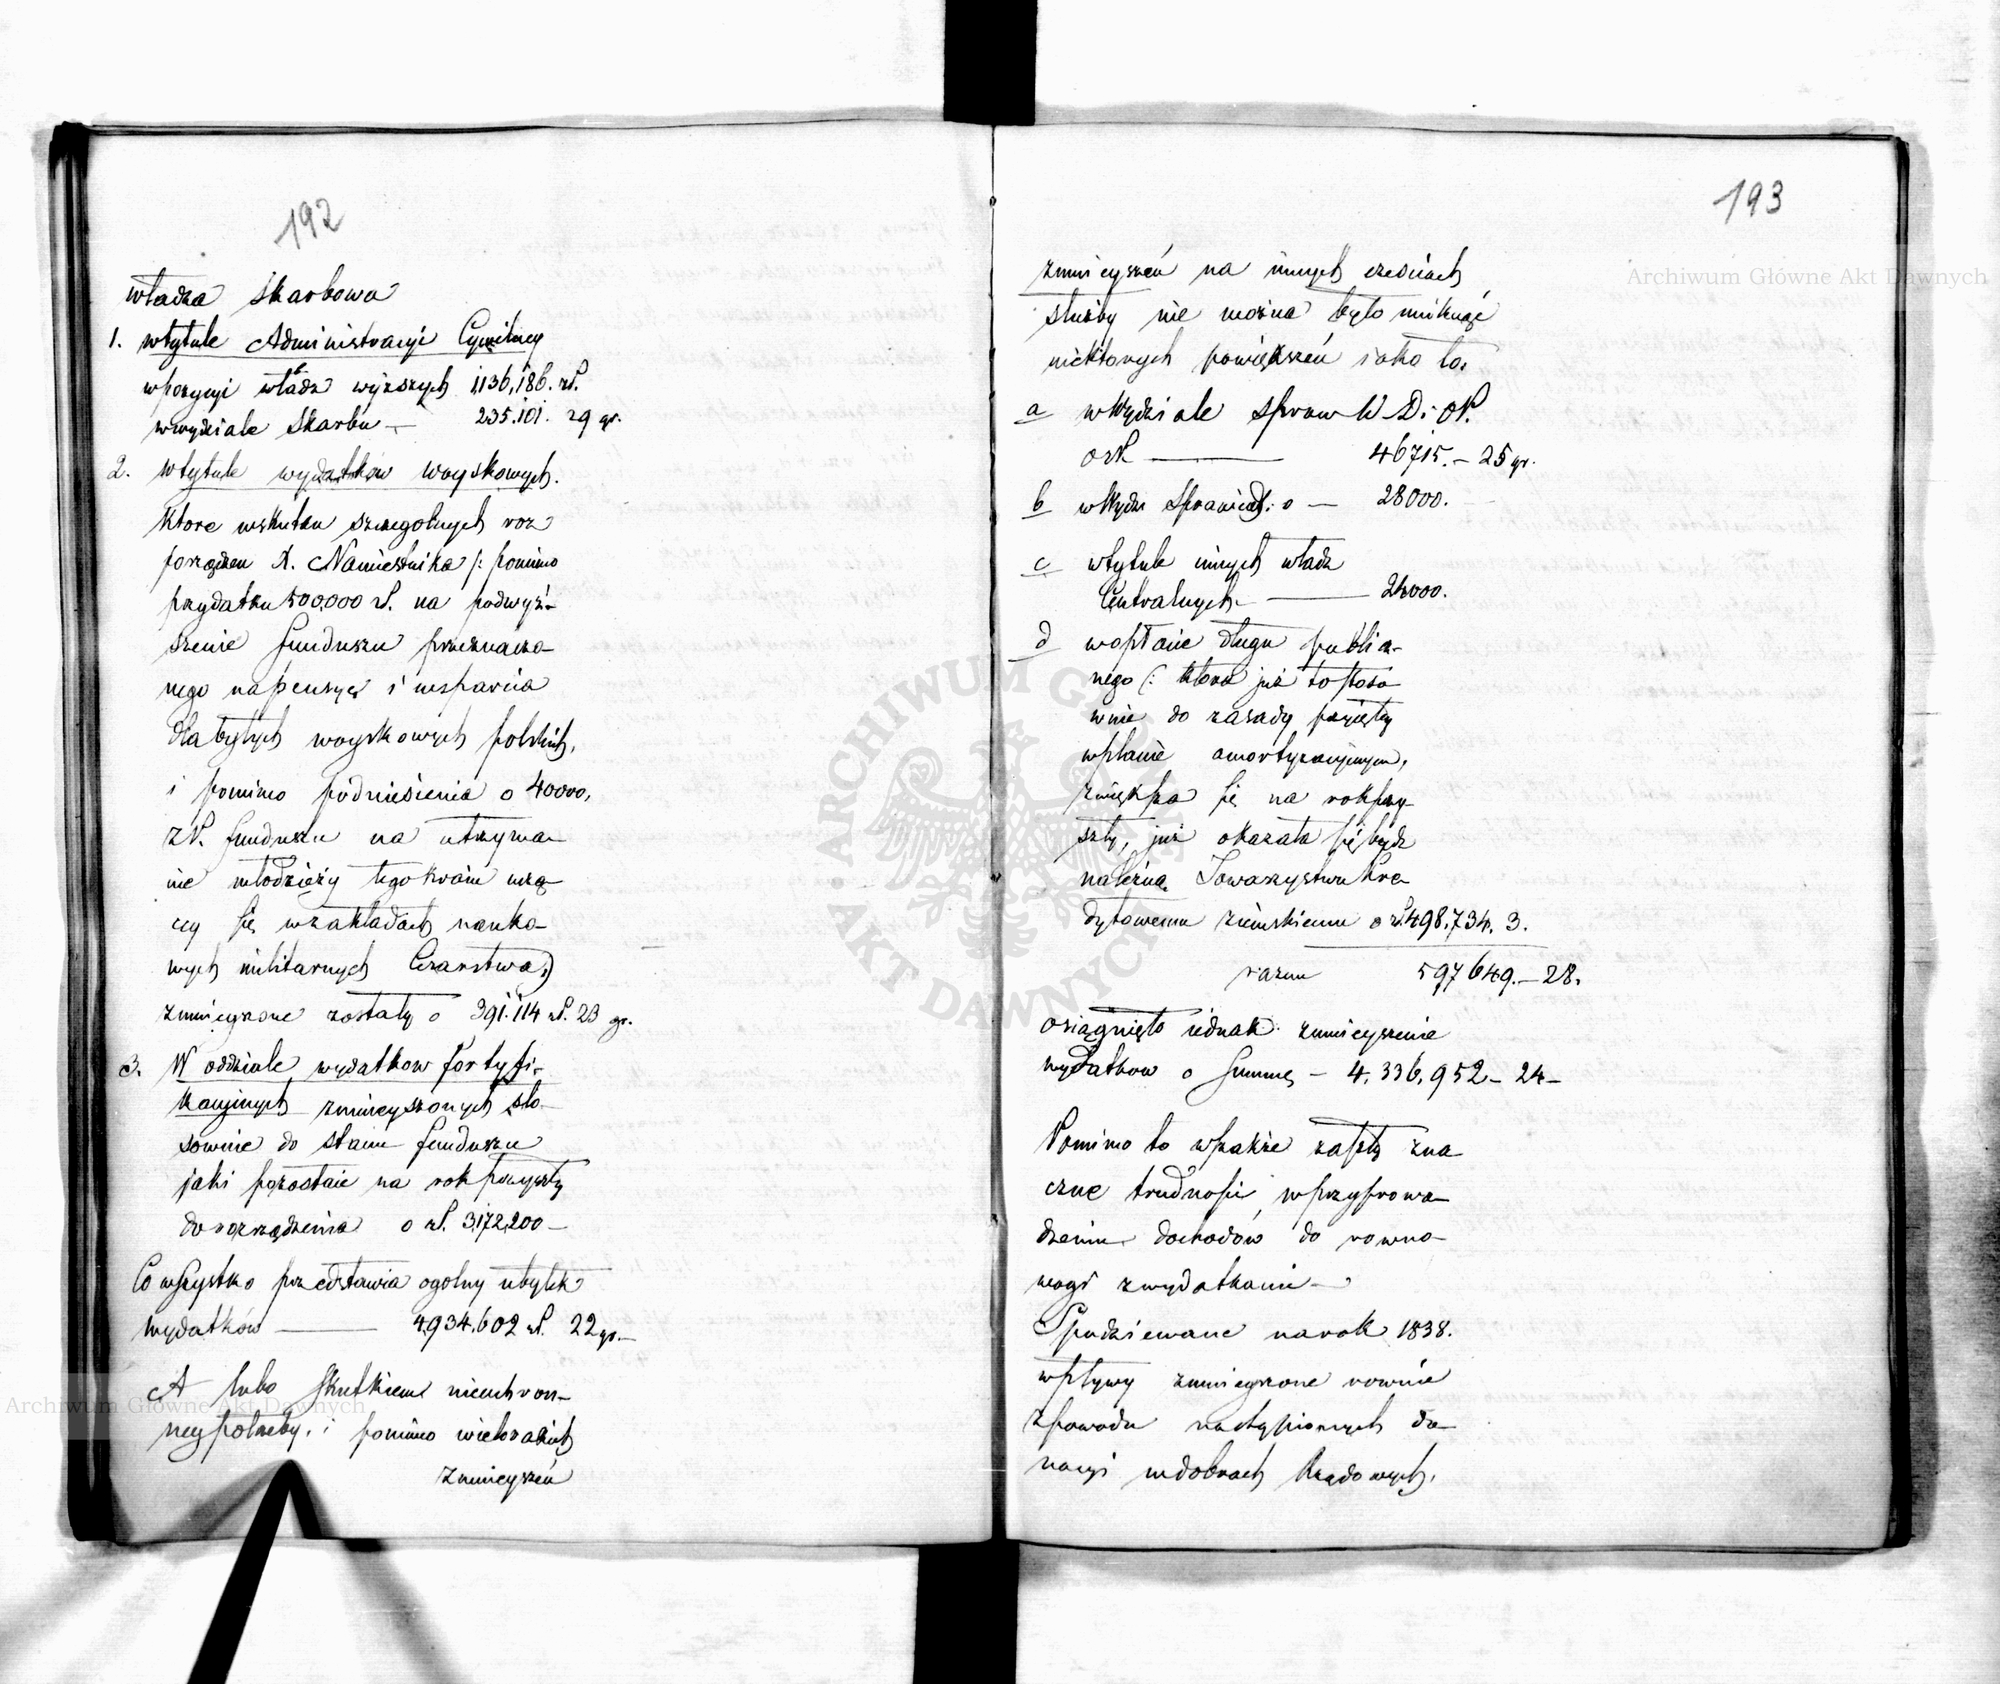 192
władza skarbowa
1. wtytule Administracyi Cywilney
wpozycyi władz wyższych 1,136,186. zł.
wwydziale Skarbu — 235.101. 29 gr.
2. wtytule wydatków woyskowych.
Ktore wskutku szczegolnych roz
porządzeń X. Namiestnika /: pomimo
przydatku 500,000 zł. na podwyż-
szenie funduszu przeznaczo
nego na pensye i wsparcia
dla byłych woyskowych polskich,
i pomimo podniesienia o 40000,
zł. funduszu na utrzyma-
nie młodzieży tego kraiu uczą-
cey się w zakładach nauko-
wych militarnych Czarstwa:)
zmnieyszone zostały o 391.114 zł. 23 gr.
3. W oddziale wydatkow fortyfi-
kacyinych zmnieyszonych sto-
sownie do stanu funduszu
jaki pozostaie na rok przyszły
do rozrządzenia o zł. 3,172,200 —
Co wszystko przedstawia ogolny ubytek
wydatków — 4,934,602 zł. 22 gr. —
A lubo skutkiem nieuchron-
ney potrzeby, i pomimo wielorakich
zmnieyszeń
193
zmnieyszeń na innych częściach
służby nie można było uniknąć
niektorych powiększeń iako to.
a wWydziale Spraw W. D. i O.P.
o zł. — 46715. — 25 gr.
b wWydz Sprawiedl: o — 28000.
c wtytule innych władz
Centralnych — 24000.
d wopłacie długu publicz-
nego (: ktora już to stoso
wnie do zasady przyięty
wplanie amortyzacyinym,
zwiększa się na rok przy-
szły, już okazała się bydź
należną Towarzystwu Kre-
dytowemu ziemskiemu o zł. 498,734. 3.
razem 597649. — 28.
osiągnięto iednak zmnieyszenie
wydatkow o Summę — 4,336,952 — 24 —
Pomimo to wszakże zaszły zna-
czne trudności, wprzyprowa-
dzeniu dochodów do rowno-
wagi zwydatkami —
Spodziewane narok 1838.
wpływy zmnieyszone rownie
zpowodu nastąpionych do-
nacyi wdobrach Rządowych,
Archiwum Główne Akt Dawnych
Archiwum Główne Akt Dawnych
ARCHIWUM GŁÓWNE AKT DAWNYCH